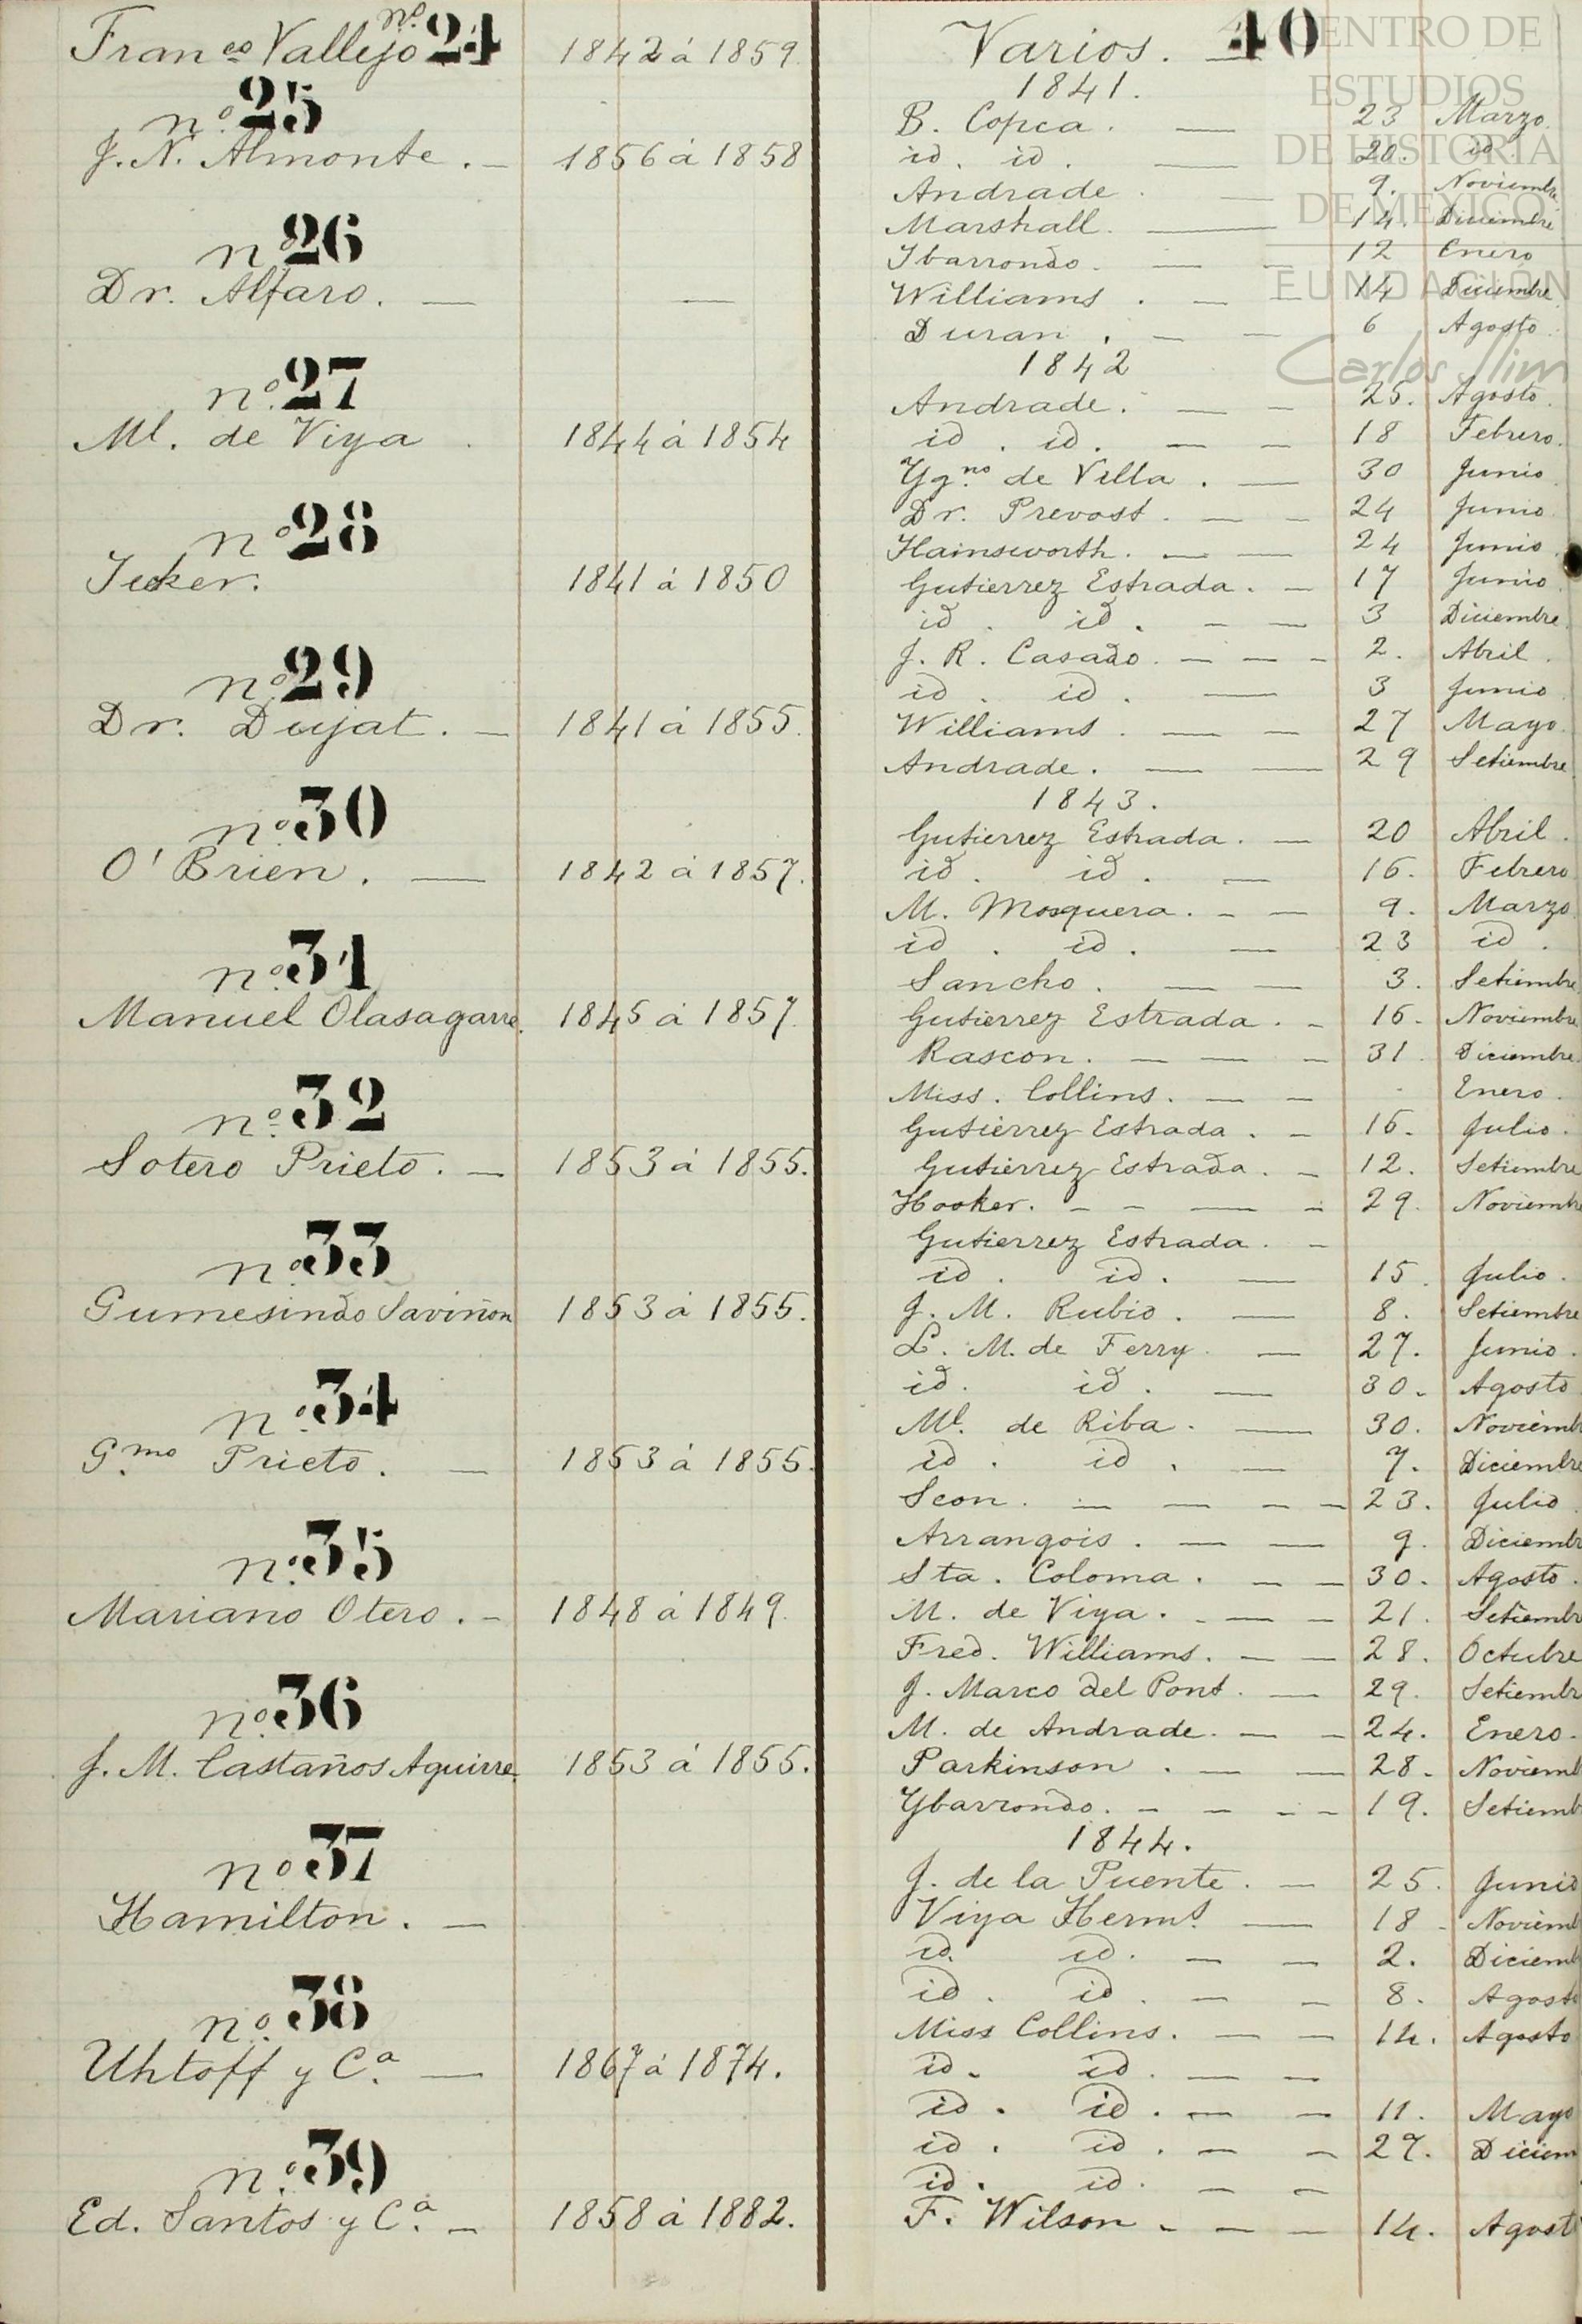 Franco Vallejo no. 24 1842 á 1859
no. 25
J. N. Almonte. — 1856 á 1858
no. 26
Dr. Alfaro. — —
no. 27
Ml. de Viya. 1844 á 1854
no. 28
Jecker. 1841 á 1850
no. 29
Dr. Dujat. — 1841 á 1855.
no. 30
O'Brien. — 1842 á 1857.
no. 31
Manuel Olasagarre. 1845 á 1857.
no. 32
Sotero Prieto. — 1853 á 1855.
no. 33
Gumesindo Saviñon 1853 á 1855.
no. 34
Gmo. Prieto. — 1853 á 1855.
no. 35
Mariano Otero. — 1848 á 1849.
no. 36
J. M. Castaños Aguirre. 1853 á 1855.
no. 37
Hamilton. —
no. 38
Uhtoff y Ca. — 1867 á 1874.
no. 39
Ed. Santos y Ca. — 1858 á 1882.
Varios. 40
1841.
B. Copca. — 23 Marzo.
id. id. — 20. id.
Andrade. — 9. Noviembre
Marshall. — 14. Diciembre
Ibarrondo. — 12 Enero
Williams. — 14 Diciembre
Duran. — 6 Agosto.
1842
Andrade. — 25. Agosto.
id. id. — 18 Febrero.
Ygno. de Villa. — 30 Junio
Dr. Prevost. — 24 Junio
Hainsworth. — 24 Junio
Gutierrez Estrada. — 17 Junio.
id. id. — 3 Diciembre.
J. R. Casado. — 2. Abril.
id. id. — 3 Junio
Williams. — 27 Mayo.
Andrade. — 29 Setiembre
1843.
Gutierrez Estrada. — 20 Abril.
id. id. — 16. Febrero
M. Mosquera. — 9. Marzo
id. id. — 23 id.
Sancho. — 3. Setiembre
Gutierrez Estrada. — 16. Noviembre
Rascon. — 31. Diciembre
Miss. Collins. — Enero.
Gutierrez Estrada. — 16. Julio.
Gutierrez Estrada. — 12. Setiembre
Hooker. — 29. Noviembre
Gutierrez Estrada. —
id. id. — 15. Julio.
J. M. Rubio. — 8. Setiembre
L. M. de Ferry. — 27. Junio.
id. id. — 30. Agosto
Ml. de Riba. — 30. Noviemb
id. id. — 7. Diciembre
Scon. — 23. Julio
Arrangois. — 9. Diciemb
Sta. Coloma. — 30. Agosto.
M. de Viya. — 21. Setiemb
Fred. Williams. — 28. Octubre
J. Marco del Pont. — 29. Setiemb
M. de Andrade. — 24. Enero.
Parkinson. — 28. Noviemb
Ybarrondo. — 19. Setiemb
1844.
J. de la Puente. — 25. Junio
Viya Herms. — 18 Noviemb
id. id. — 2. Diciemb
id. id. — 8. Agosto
Miss Collins. — 14. Agosto
id. id. —
id. id. — 11. Mayo
id. id. — 27. Diciem
id. id. —
F. Wilson. — 14. Agost
CENTRO DE
ESTUDIOS
DE HISTORIA
DE MÉXICO
FUNDACIÓN
Carlos Slim